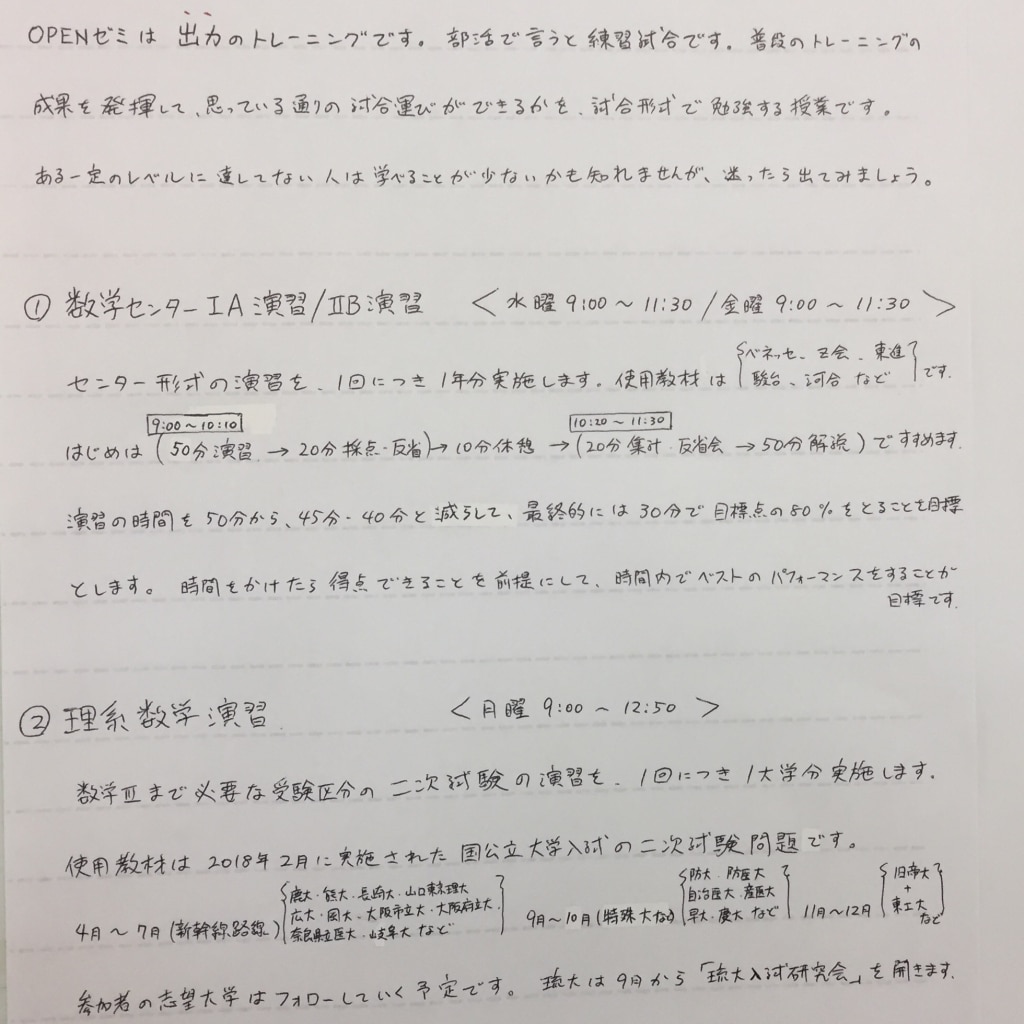 OPENゼミは 出力のトレーニングです。部活で言うと練習試合です。普段のトレーニングの
成果を発揮して、思っている通りの試合運びができるかを、試合形式で勉強する授業です。
ある一定のレベルに達してない人は学べることが少ないかも知れませんが、迷ったら出てみましょう。
① 数学センターⅠA演習/ⅡB演習 <水曜 9:00～11:30 /金曜 9:00～11:30>
センター形式の演習を、1回につき1年分実施します。使用教材は{ベネッセ、Z会、東進
駿台、河合 など}です。
9:00～10:10 10:20～11:30
はじめは(50分演習→20分採点・反省)→10分休憩→(20分集計・反省会→50分解説)ですすめます。
演習の時間を50分から、45分・40分と減らして、最終的には30分で目標点の80%をとることを目標
とします。時間をかけたら得点できることを前提にして、時間内でベストのパフォーマンスをすることが
目標です。
② 理系数学演習 <月曜 9:00～12:50>
数学Ⅲまで必要な受験区分の二次試験の演習を、1回につき1大学分実施します。
使用教材は2018年2月に実施された国公立大学入試の二次試験問題です。
4月～7月(新幹線路線){鹿大・熊大・長崎大・山口東京理大
広大・岡大・大阪市立大・大阪府立大
奈良県立医大・岐阜大 など}
9月～10月(特殊大など){防大・防医大
自治医大・産医大
早大・慶大 など}
11月～12月{旧帝大
+
東工大
など}
参加者の志望大学はフォローしていく予定です。琉大は9月から「琉大入試研究会」を開きます。